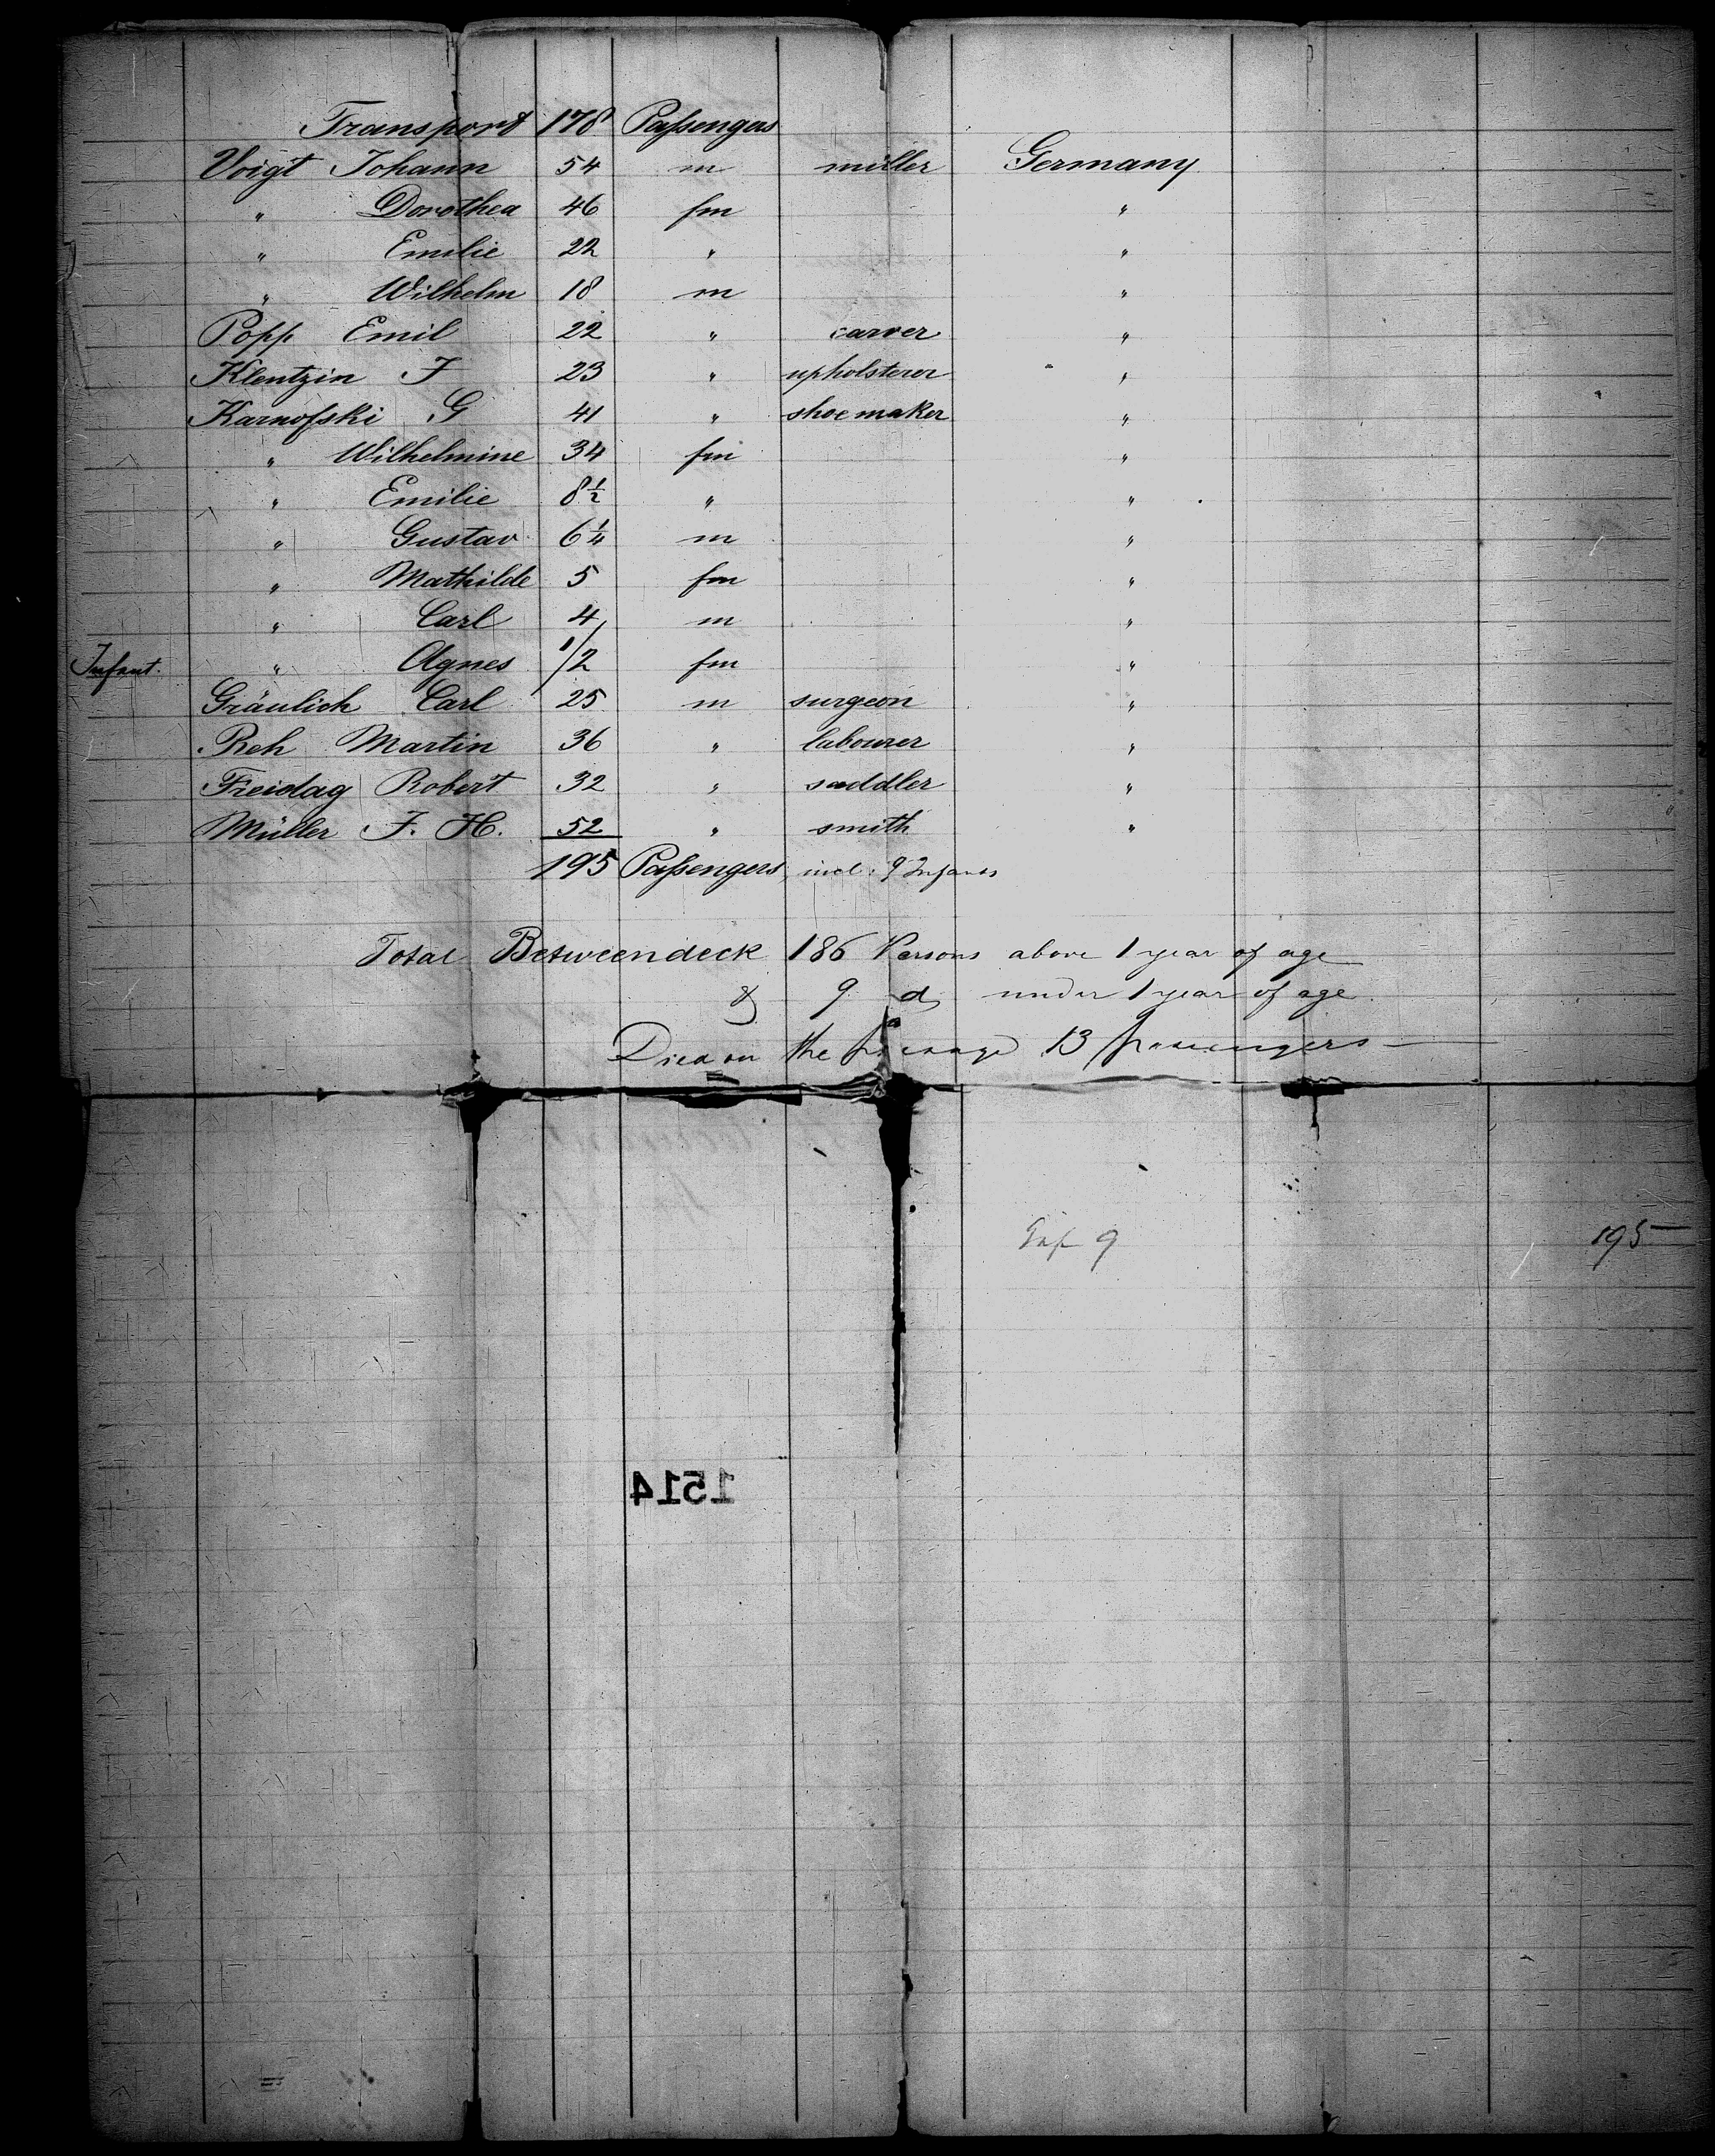 Transport 178 Passengers
Voigt Johann 54 m miller Germany
" Dorothea 46 fm "
" Emilie 22 " "
" Wilhelm 18 m "
Popp Emil 22 " carver "
Klentzin F 23 " upholsterer "
Karnofski G 41 " shoemaker "
" Wilhelmine 34 fm "
" Emilie 8½ " "
" Gustav 6¼ m "
" Mathilde 5 fm "
" Carl 4 m "
Infant. " Agnes 1/2 fm "
Gräulich Carl 25 m surgeon "
Reh Martin 36 " labourer "
Freidag Robert 32 " saddler "
Müller F. H. 52 " smith "
195 Passengers, incl: 9 Infants
Total Betweendeck 186 Persons above 1 year of age
& 9 do under 1 year of age
Died on the passage 13 passengers
Inf 9 195
1514